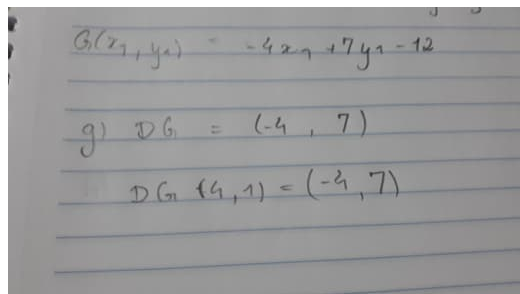 G(x1, y1) = -4x1 + 7y1 - 12
g) DG = (-4, 7)
DG (4, 1) = (-4, 7)